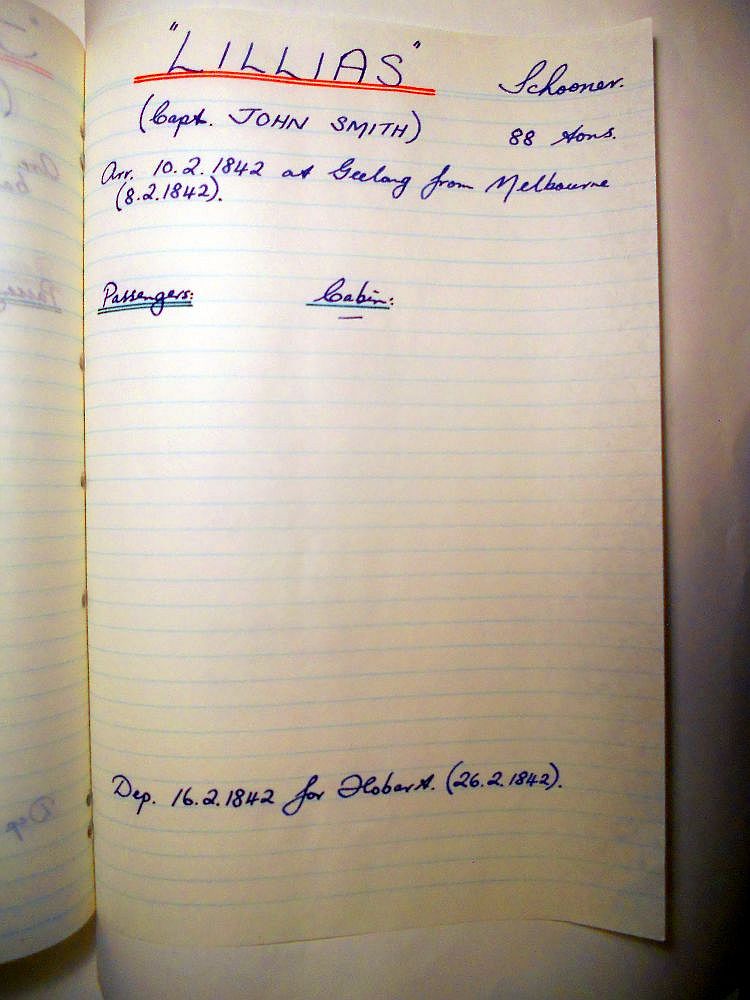 "LILLIAS" Schooner.
(Capt. JOHN SMITH) 88 tons.
Arr. 10.2.1842 at Geelong from Melbourne
(8.2.1842).
Passengers: Cabin:
—
Dep. 16.2.1842 for Hobart. (26.2.1842).
Dep